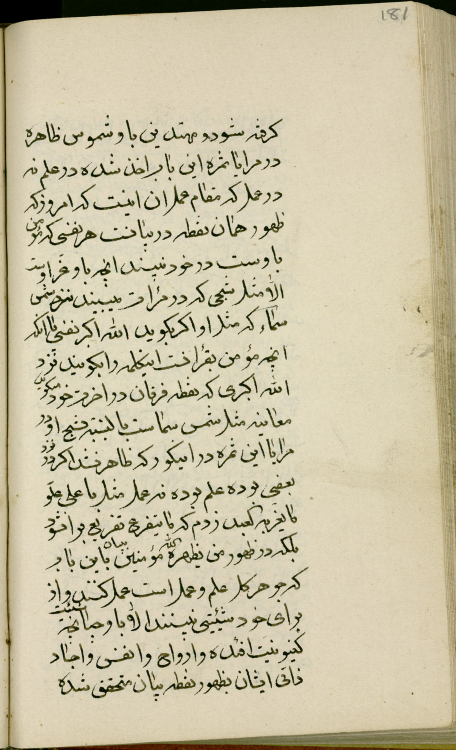 181
کرفته شود و مهتدین باو شموس ظاهره
در مرایا ثمره این باب اخذ شده در علم نه
در عمل که مقام عمل ان اینست که امروز که
ظهور همان نقطه در بیانست هر نفسی که مؤمن
باوست در خود نبیند انچه باو غیر اوست
الا مثل شبحی که در مرآت میبیند نزد شمس
سماء که مثل او اکر بکوید الله اکبر نفسی با انکه
انچه مؤمن بقرآنست اینکلمه را میکویند نزد
الله اکبری که نقطه فرقان در اخرت خود میکوید
بعینه مثل شمس سماست بالنسبه بشبح او در
مرایا این ثمره در این کور که ظاهر نشد اکر نزد
بعضی بوده علم بوده نه عمل مثل یا علی علو
بلکه در ظهور من یظهره الله مؤمنین ببیان باین باب
که جوهر کل علم و عمل است عمل کنند و از
برای خود شیئیتی نبینند الا باو چنانچه
کینونیت افئده و ارواح و انفس و اجساد
ذاتی ایشان بظهور نقطه بیان متحقق شده